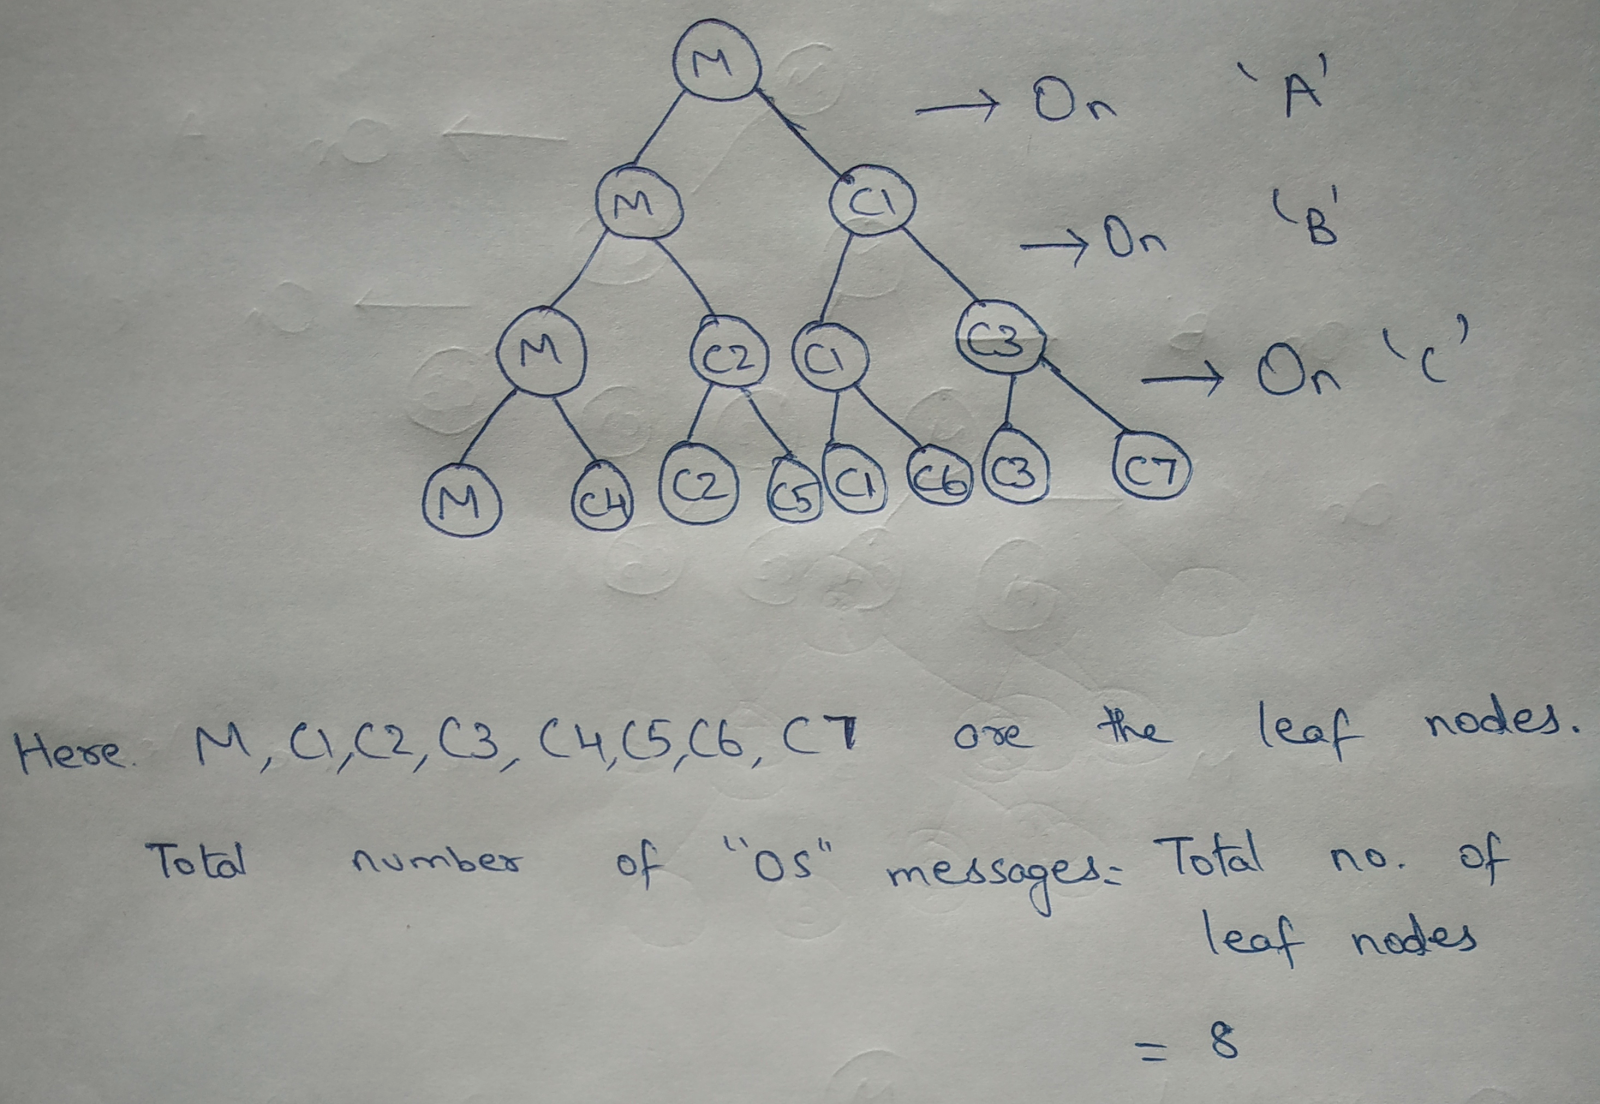 M
→ On 'A'
M C1
→ On 'B'
M C2 C1 C3
→ On 'C'
M C4 C2 C5 C1 C6 C3 C7
Here. M, C1, C2, C3, C4, C5, C6, C7 are the leaf nodes.
Total number of "OS" messages = Total no. of
leaf nodes
= 8